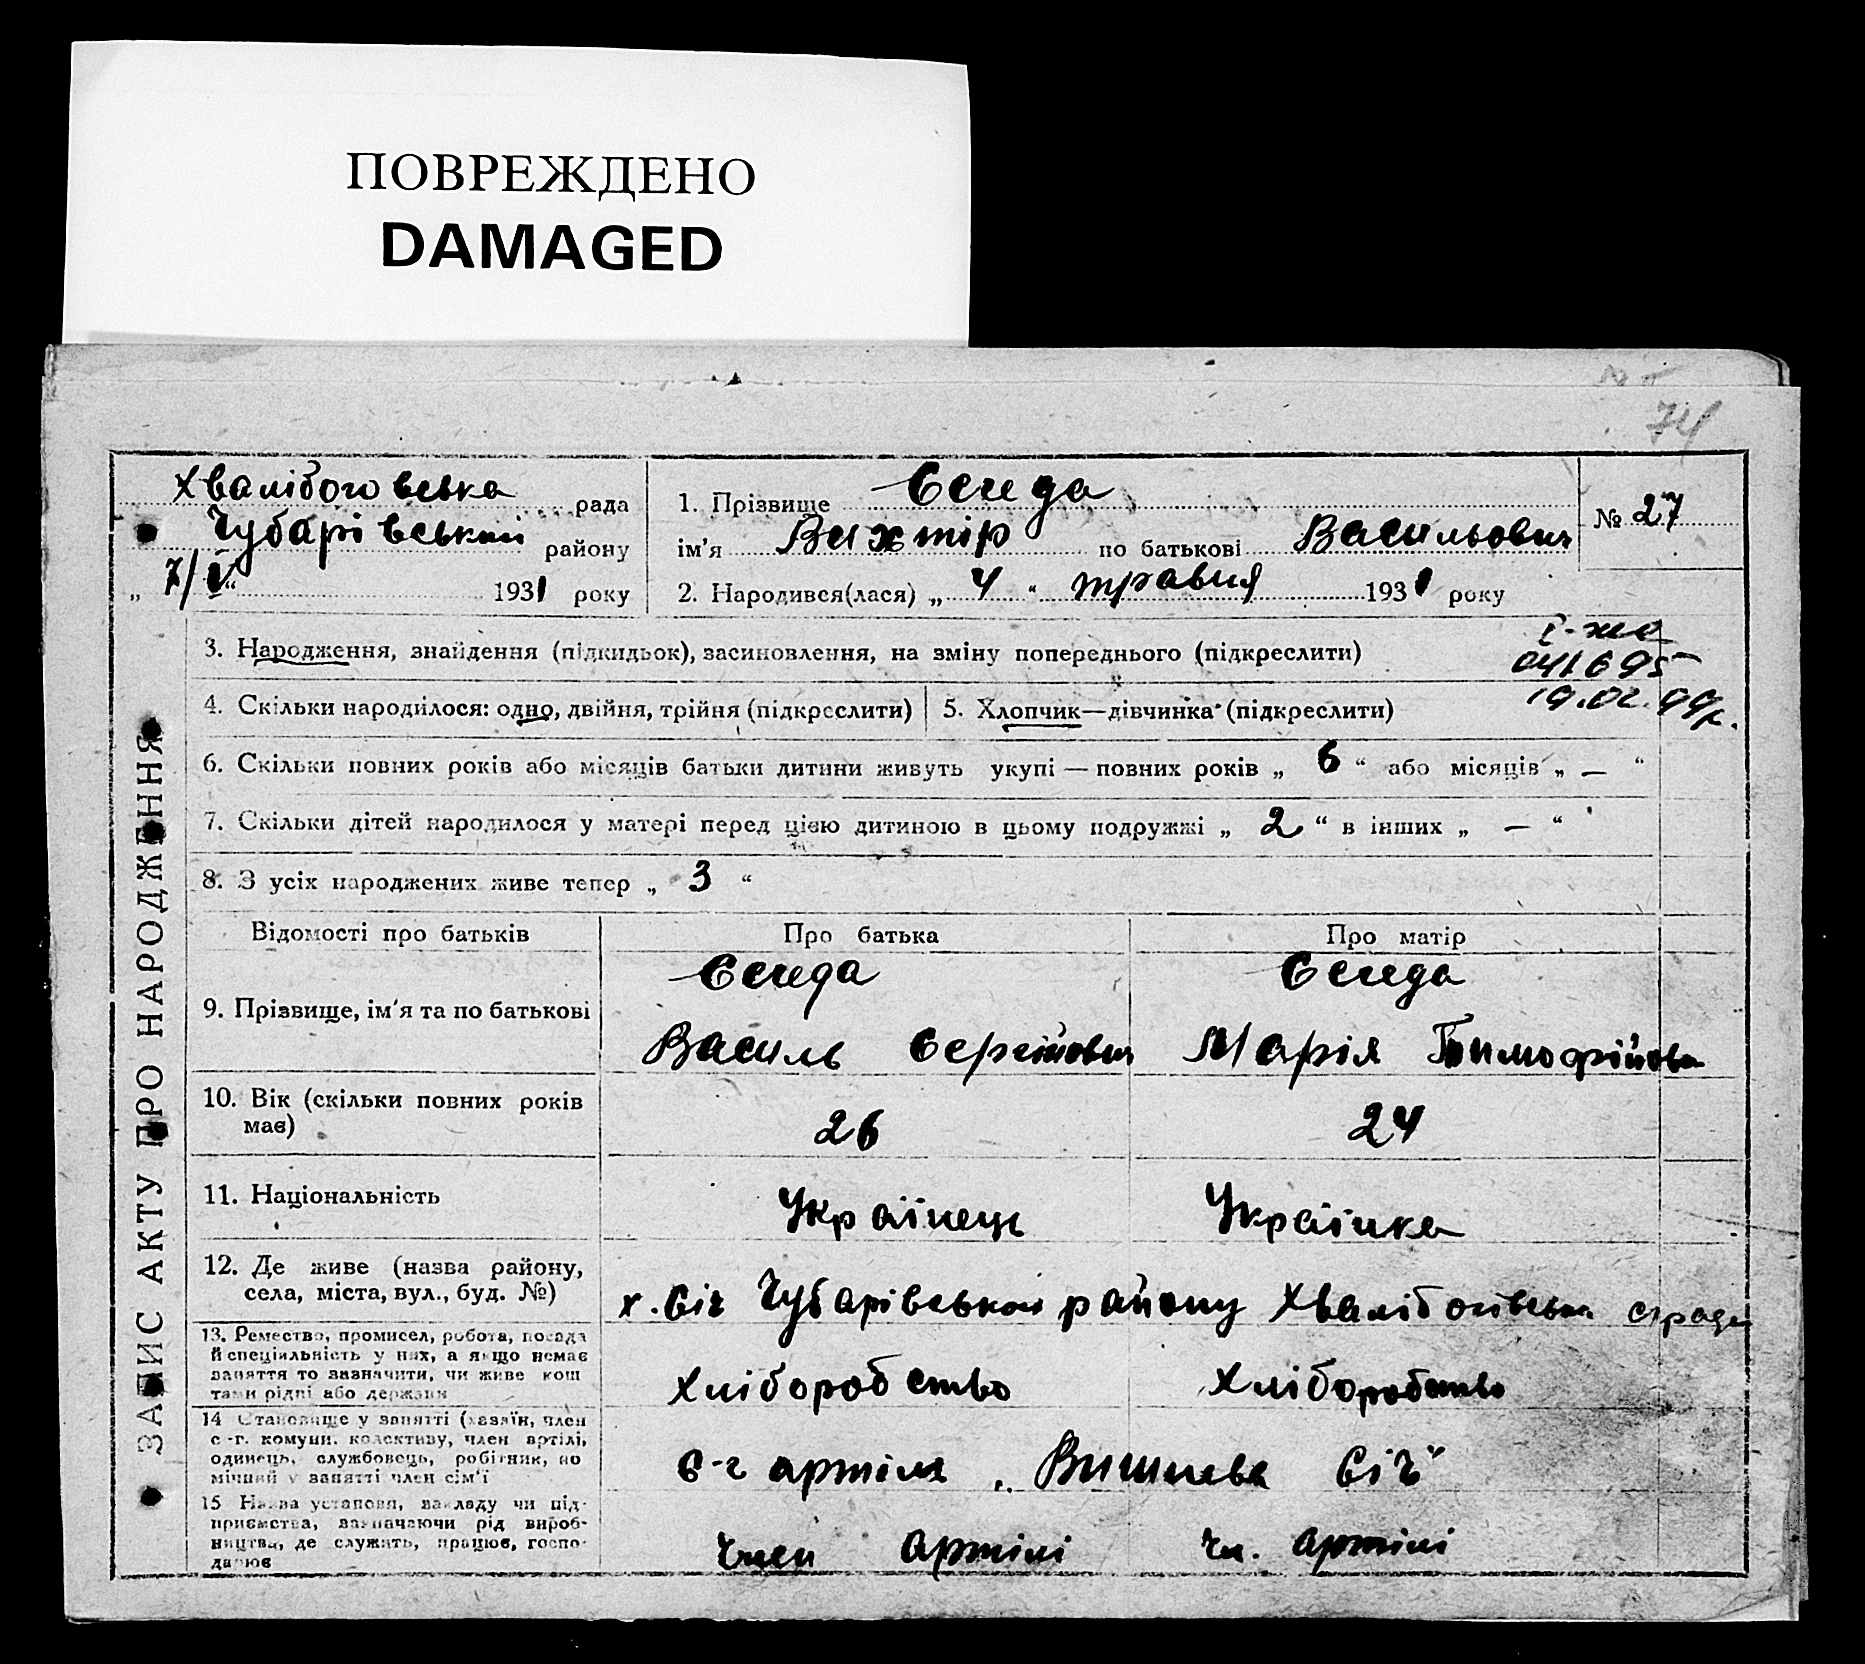 ПОВРЕЖДЕНО
DAMAGED
74
Хвалібоговська рада
Чубарівський району
„ 7/V “ 1931 року
1. Прізвище Середа
ім'я Віхтір по батькові Васильович
№ 27
2. Народився(лася) „ 4 “ травня 1931 року
3. Народження, знайдення (підкидьок), засиновлення, на зміну попереднього (підкреслити)
041695
19.02.99р.
4. Скільки народилося: одно, двійня, трійня (підкреслити)
5. Хлопчик—дівчинка (підкреслити)
6. Скільки повних років або місяців батьки дитини живуть укупі — повних років „ 6 “ або місяців „ — “
7. Скільки дітей народилося у матері перед цією дитиною в цьому подружжі „ 2 “ в інших „ — “
8. З усіх народжених живе тепер „ 3 “
ЗАПИС АКТУ ПРО НАРОДЖЕННЯ
Відомості про батьків
Про батька
Про матір
9. Прізвище, ім'я та по батькові
Середа
Василь Сергійович
Середа
Марія Тимофійовна
10. Вік (скільки повних років
має)
26
24
11. Національність
Українець
Українка
12. Де живе (назва району,
села, міста, вул., буд. №)
х. Січ Чубарівського району Хвалібогівська с/рада
13. Ремество, промисел, робота, посада
й спеціяльність у них, а якщо немає
заняття то зазначити, чи живе кош
тами рідні або держави
Хліборобство
Хліборобство
14 Становище у занятті (хазяїн, член
с.-г. комуни, колективу, член артілі,
одинець, службовець, робітник, по
мічний у занятті член сім'ї
с-г артіля „Вишнева Січ"
15 Назва установи, закладу чи під-
приємства, зазначаючи рід вироб-
ництва, де служить, працює, госпо-
дарює
Член артілі
Чл. артілі